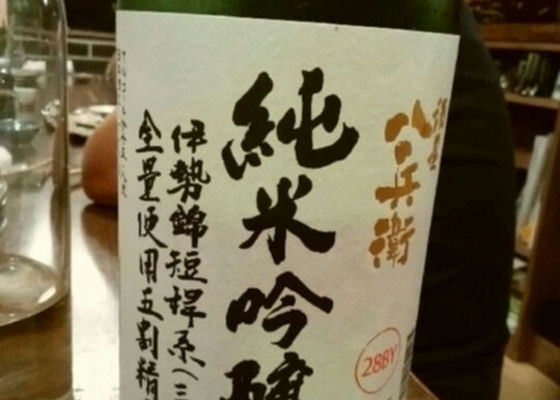 八兵衛
純米吟醸
伊勢錦短稈系(三
全量使用五割精
288Y